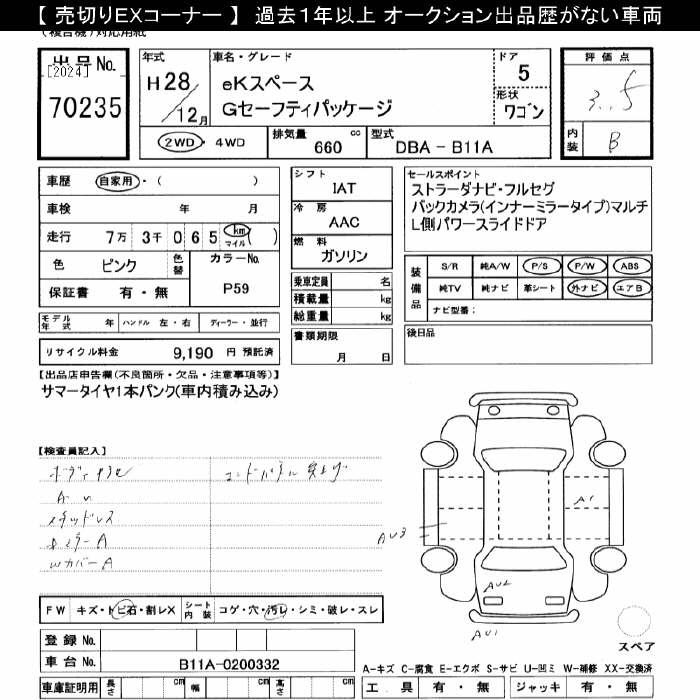 【 売切りEXコーナー 】 過去1年以上 オークション出品歴がない車両
(複合機)対応用紙
出品No.
[2024]
70235
年式
H28/12月
車名・グレード
eKスペース
Gセーフティパッケージ
ドア
5
形状
ワゴン
2WD ・ 4WD
排気量 660 cc
型式 DBA - B11A
評価点
3.5
内装 B
車歴 自家用・( )
車検 年 月
走行 7万 3千 0 6 5 km マイル( )
色 ピンク 色替 カラーNo. P59
保証書 有・無
モデル年式 年 ハンドル 左・右 ディーラー・並行
リサイクル料金 9,190 円 預託済
シフト
IAT
冷房
AAC
燃料
ガソリン
乗車定員 名
積載量 kg
総重量 kg
書類期限
月 日
セールスポイント
ストラーダナビ・フルセグ
バックカメラ(インナーミラータイプ)マルチ
L側パワースライドドア
装備品
S/R 純A/W P/S P/W ABS
純TV 純ナビ 革シート 外ナビ エアB
ナビ型番:
後日品
【出品店申告欄(不良箇所・欠品・注意事項等)】
サマータイヤ1本パンク(車内積み込み)
【検査員記入】
スタッドレス
ドミラーA
WカバーA
A1
AU3
AU2
AU1
FW キズ・トビ石・割レX シート内装 コゲ・穴・汚レ・シミ・破レ・スレ
登録 No.
車台 No. B11A-0200332
車庫証明用 長さ cm 幅 cm 高さ cm
スペア
A-キズ C-腐食 E-エクボ S-サビ U-凹ミ W-補修 XX-交換済
工具 有・無 ジャッキ 有・無